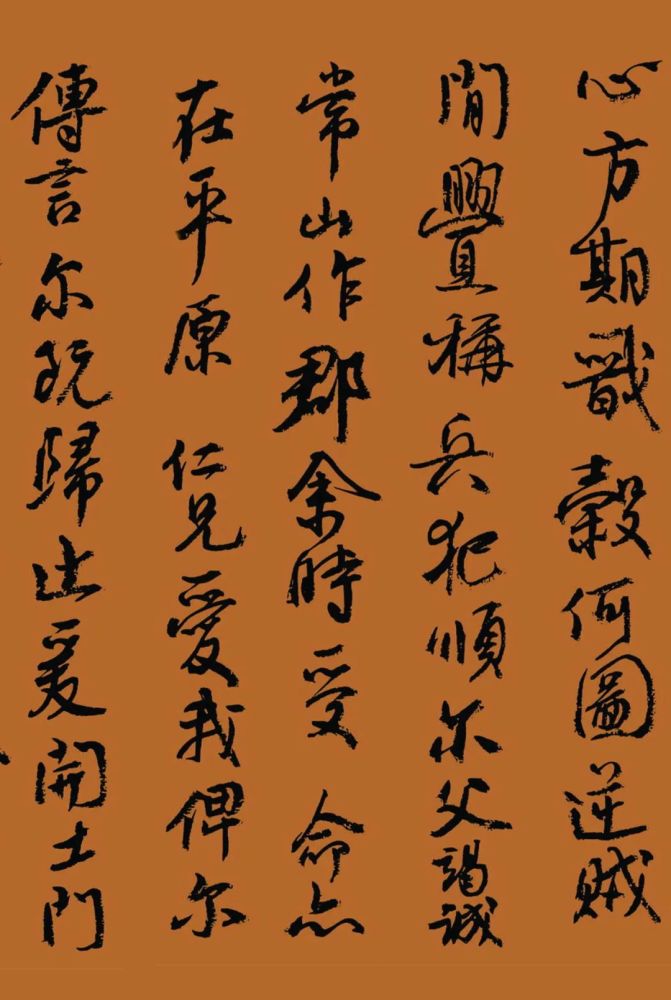 心方期戬穀何圖逆賊
閒舋稱兵犯順尔父竭誠
常山作郡余時受命亦
在平原仁兄愛我俾尔
傳言尔既歸止爰開土門